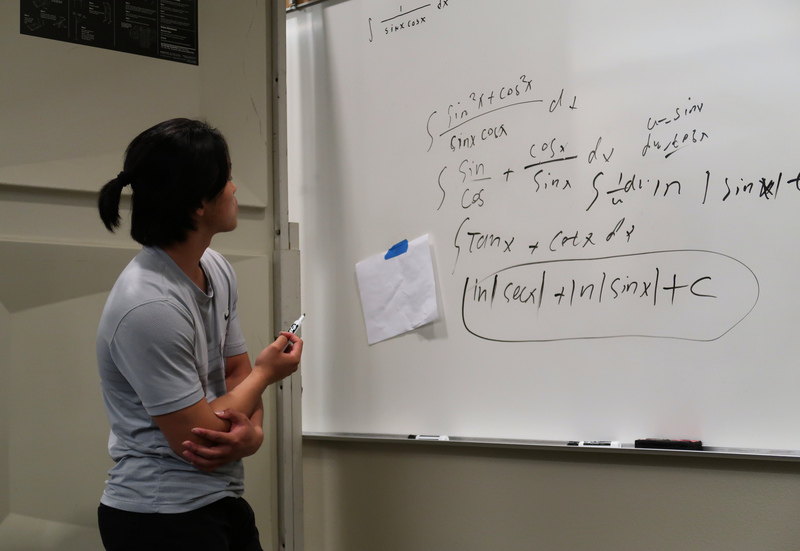 ∫ 1/(sinx cosx) dx
∫ (sin²x + cos²x)/(sinx cosx) dx
u = sinx
∫ sin/cos + cosx/sinx dx
∫ 1/u du = ln |sinx| +
∫ Tanx + cotx dx
ln|secx| + ln|sinx| + C